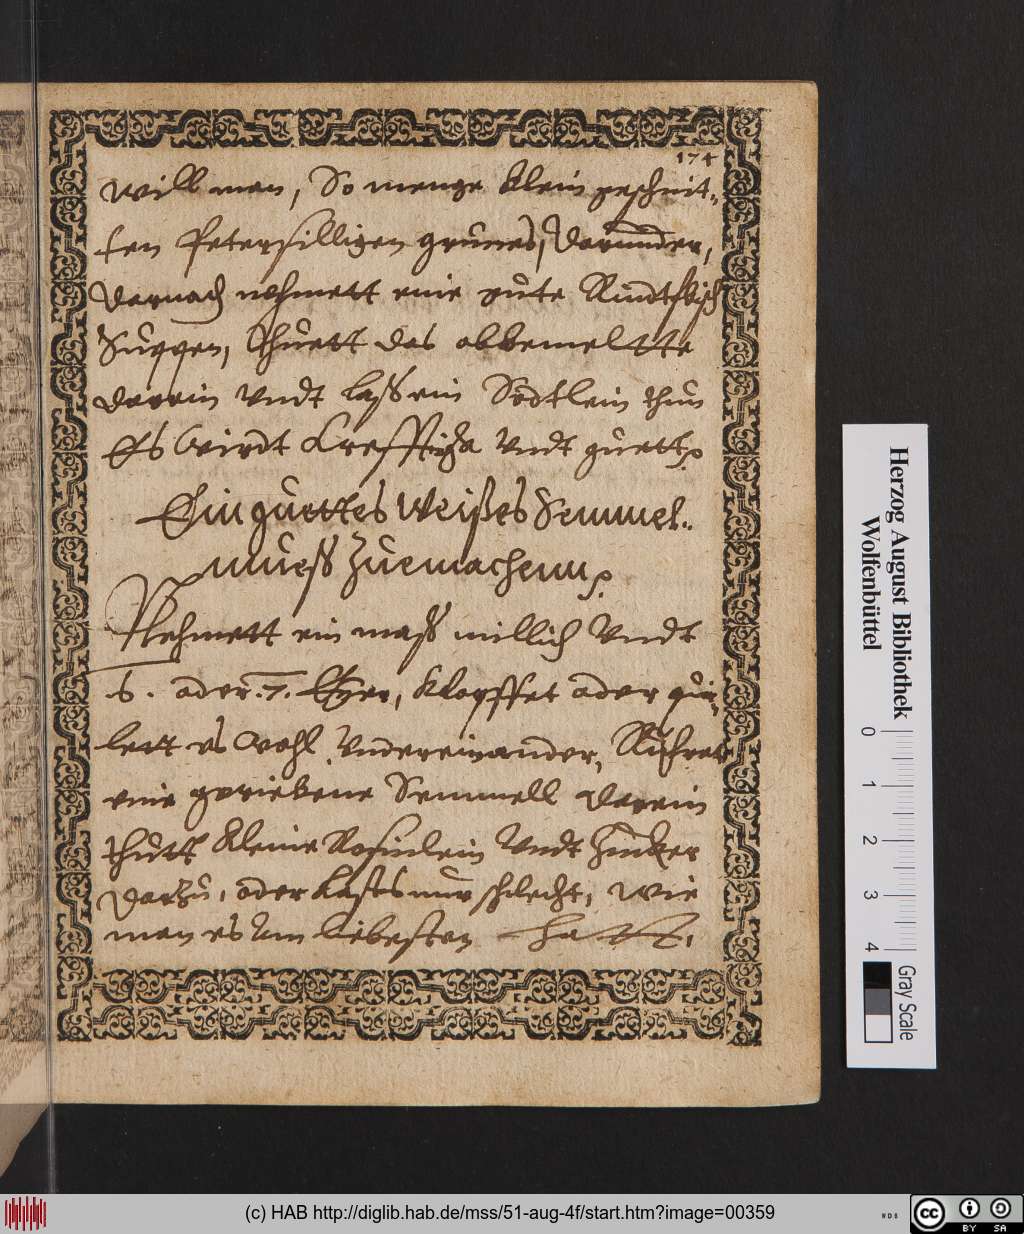 174
will man, So menge klein geschnit„
ten Petersilligen grünes, darunder,
darnach nehmett eine gute Rindtfleisch
Suppen, thuett das obbemeltte
darein Vndt laß ein Södtlein thun
Es Wirdt Krefftig Vndt guett
Ein guettes Weißes Semmel„
mueß Zuemachenn
Nehmett ein maß millich Vndt
6. oder .7. Eyer, klopffet oder quir„
lett es Wohl Vndereinander, Rühret
eine geriebene Semmell darein
thutt kleine Rosinlein Vndt Zucker
darzu, oder Laßts nur schlecht, wie
man es Am liebesten hatt,
Herzog August Bibliothek
Wolfenbüttel
0 1 2 3 4
Gray Scale
(c) HAB http://diglib.hab.de/mss/51-aug-4f/start.htm?image=00359
WDB
cc
BY SA